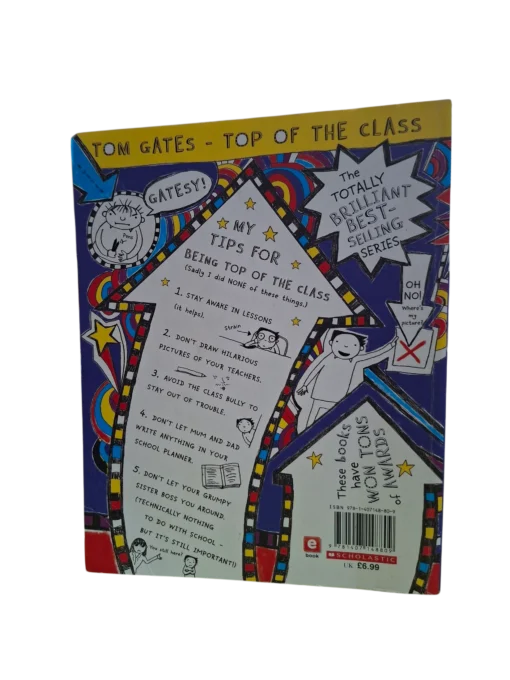 TOM GATES - TOP OF THE CLASS
GATESY!
The
TOTALLY
BRILLIANT
BEST-
SELLING
SERIES
MY
TIPS FOR
BEING TOP OF THE CLASS
(Sadly I did NONE of these things.)
1. STAY AWAKE IN LESSONS
(it helps).
2. DON'T DRAW HILARIOUS
PICTURES OF YOUR TEACHERS.
3. AVOID THE CLASS BULLY TO
STAY OUT OF TROUBLE.
4. DON'T LET MUM AND DAD
WRITE ANYTHING IN YOUR
SCHOOL PLANNER.
5. DON'T LET YOUR GRUMPY
SISTER BOSS YOU AROUND.
(TECHNICALLY NOTHING
TO DO WITH SCHOOL -
BUT IT'S STILL IMPORTANT!)
You still here?
OH
NO!
Where's
my
picture?
These books
have
WON TONS
of AWARDS
ISBN 978-1-407148-80-9
9 781407 148809
e
book
SCHOLASTIC
UK £6.99